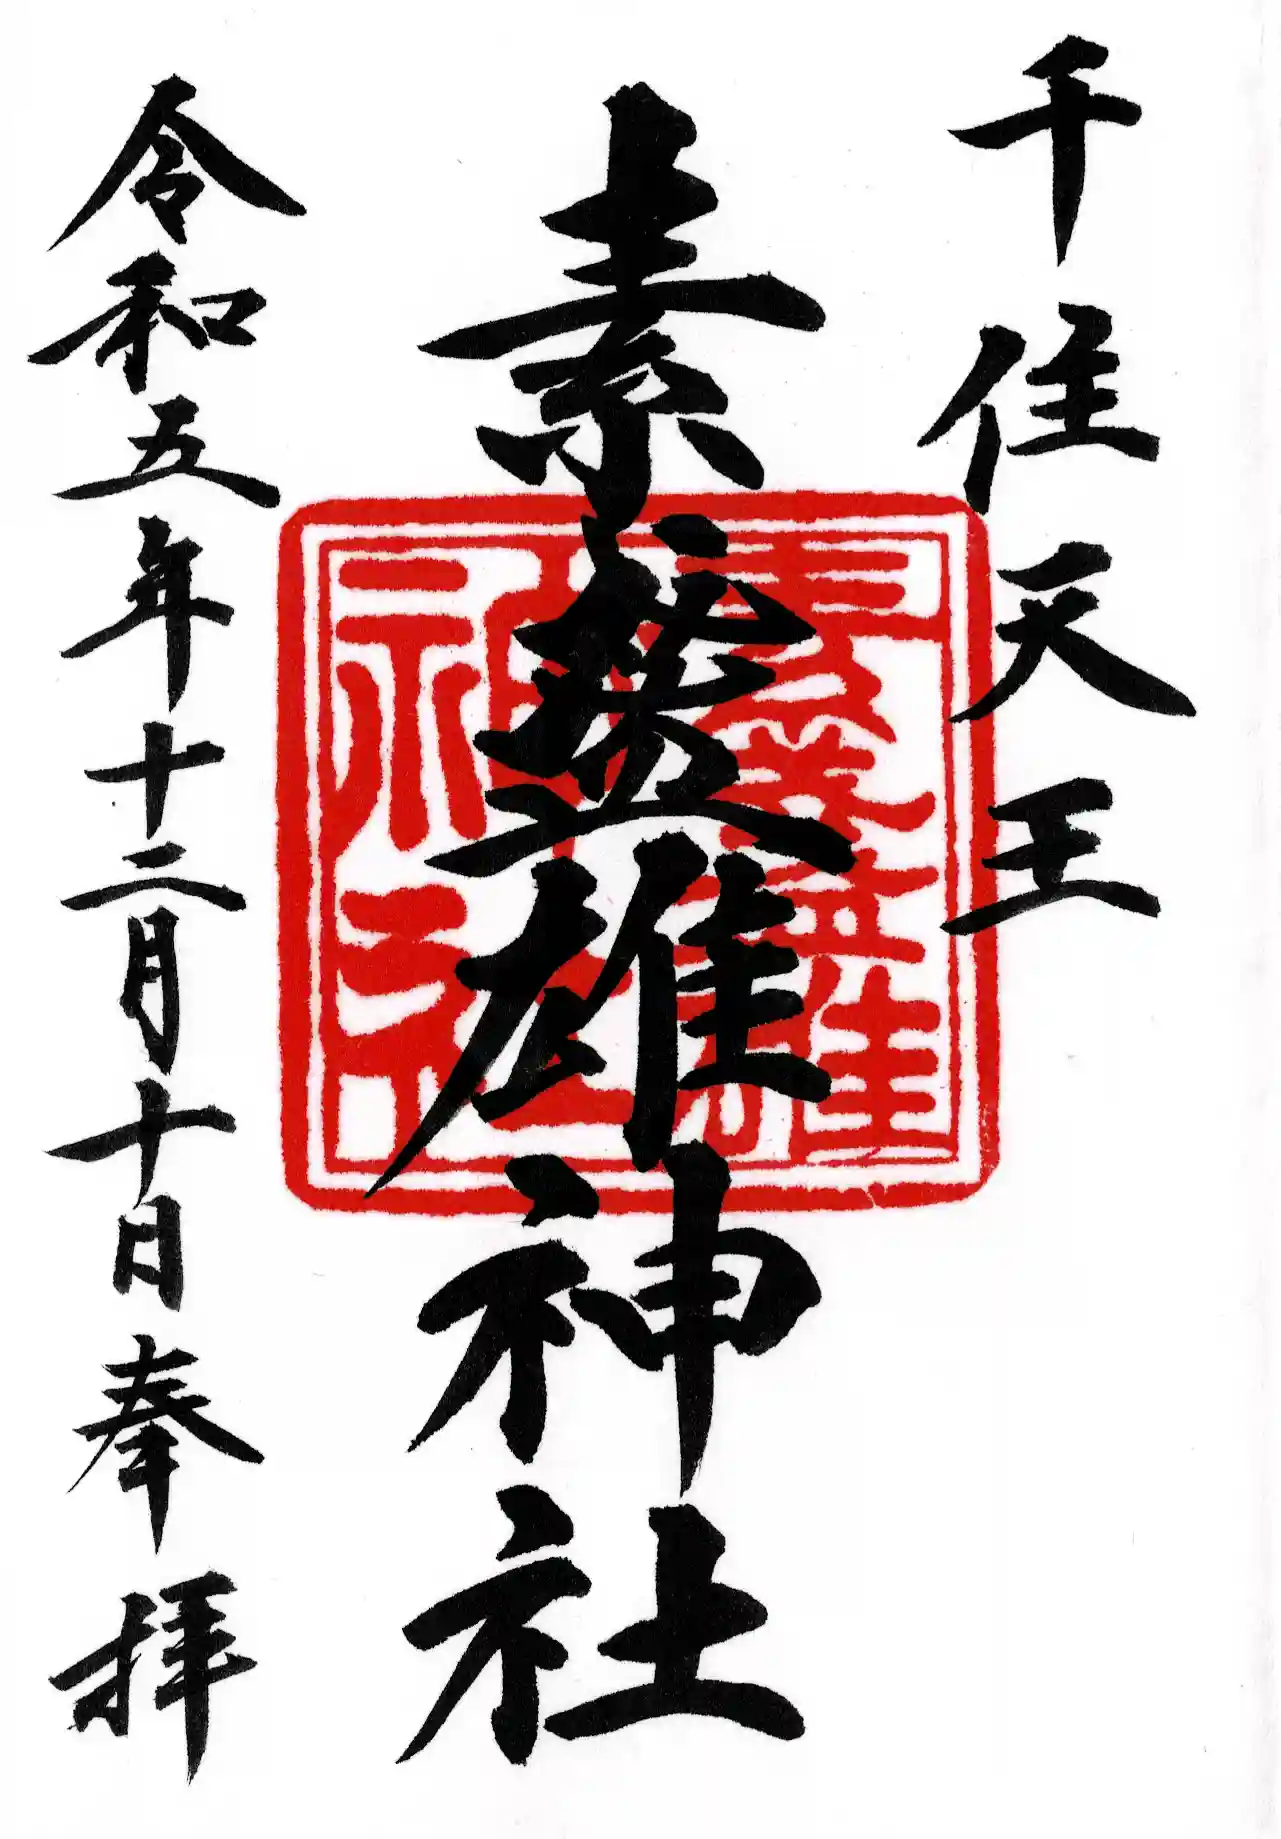 千住天王
素盞雄神社
素盞雄神社
令和五年十二月十日奉拝